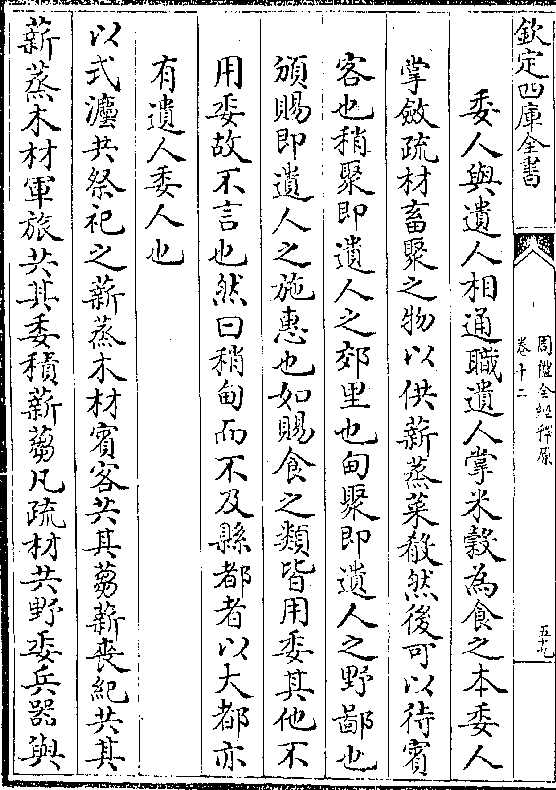 欽定四庫全書
周禮全經釋原
卷十二
五十九
委人與遺人相通職遺人掌米穀為食之本委人
掌斂疏材畜聚之物以供薪蒸菜殽然後可以待賓
客也稍聚即遺人之郊里也甸聚即遺人之野鄙也
頒賜即遺人之施惠也如賜食之類皆用委其他不
用委故不言也然曰稍甸而不及縣都者以大都亦
有遺人委人也
以式灋共祭祀之薪蒸木材賓客共其芻薪喪紀共其
薪蒸木材軍旅共其委積薪芻凡疏材共野委兵器與